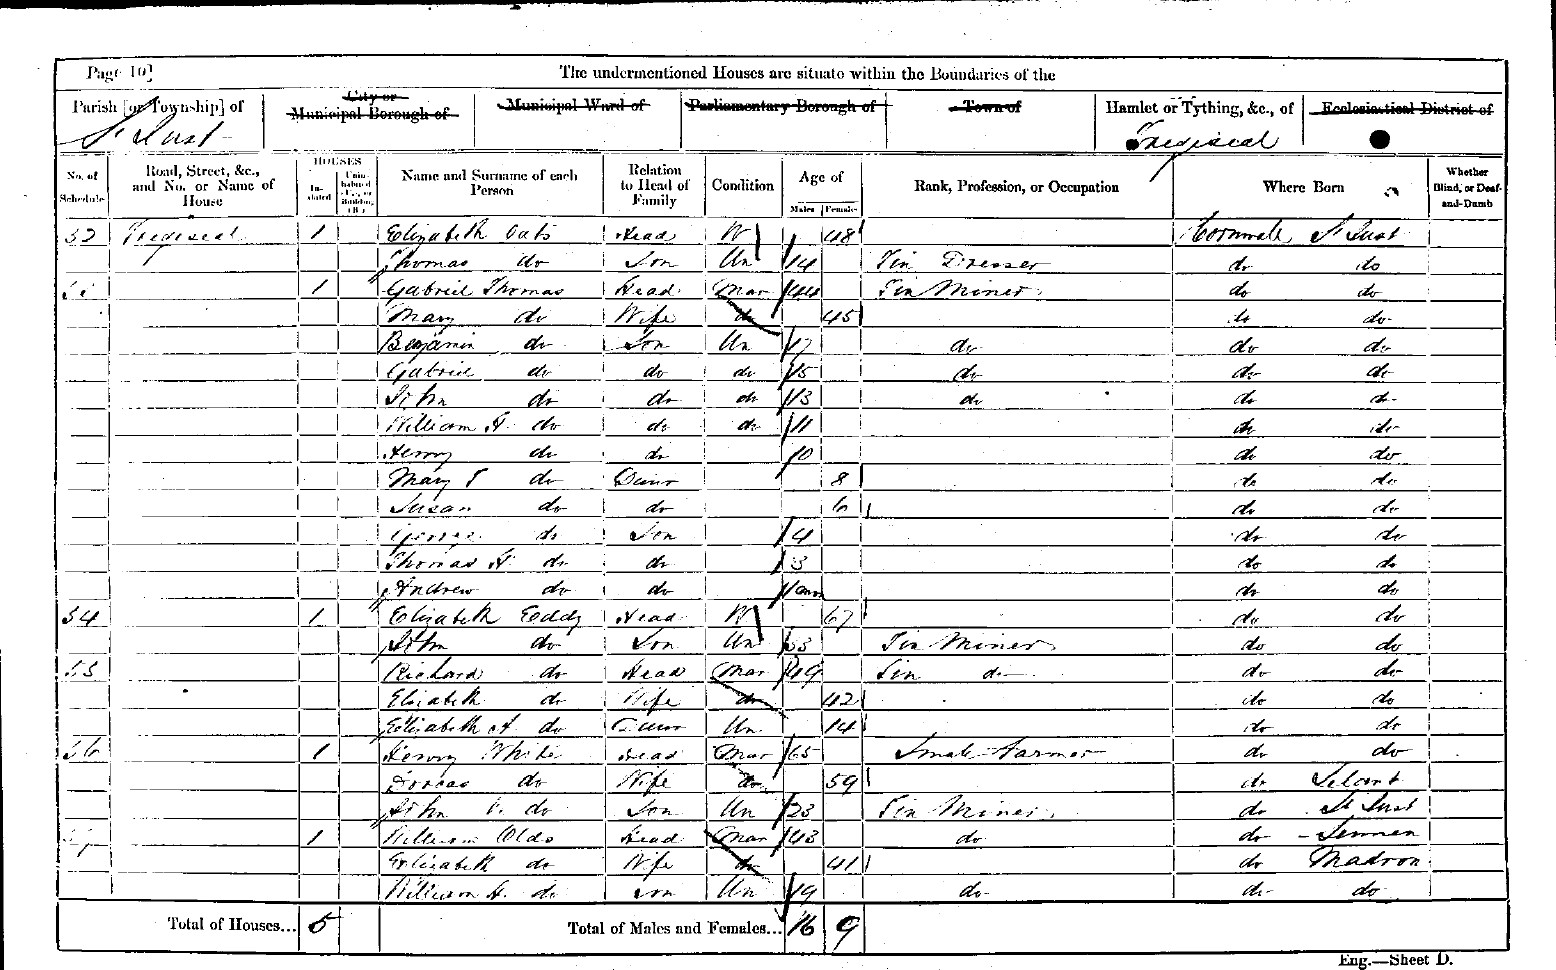 Page 10]
The undermentioned Houses are situate within the Boundaries of the
Parish [or Township] of
City or Municipal Borough of
Municipal Ward of
Parliamentary Borough of
Town of
Hamlet or Tything, &c., of
Ecclesiastical District of
St Just
Tregiseal
No. of Schedule
Road, Street, &c., and No. or Name of House
HOUSES
Name and Surname of each Person
Relation to Head of Family
Condition
Age of
Males
Females
Rank, Profession, or Occupation
Where Born
Whether Blind, or Deaf-and-Dumb
52 Tregiseal 1 Elizabeth Oats Head W 48 Cornwall St Just
Thomas do Son Un 14 Tin Dresser do do
1 Gabriel Thomas Head Mar 44 Tin Miner do do
Mary do Wife do 45 do do
Benjamin do Son Un 17 do do do
Gabriel do do do 15 do do do
John do do do 13 do do do
William H. do do do 11 do do
Henry do do 10 do do
Mary do Daur 8 do do
Susan do do 6 do do
George do Son 4 do do
Thomas H. do do 3 do do
Andrew do do do do
54 1 Elizabeth Eddy Head W 67 do do
John do Son Un 33 Tin Miner do do
55 Richard do Head Mar 49 Tin do do do
Elizabeth do Wife do 42 do do
Elizabeth A. do Daur Un 14 do do
56 1 Henry White Head Mar 65 Small Farmer do do
Dorcas do Wife do 59 do Lelant
John do Son Un 23 Tin Miner do St Just
1 William Olds Head Mar 43 do do Sennen
Elizabeth do Wife do 41 do Madron
William H. do Son Un 19 do do do
Total of Houses... 5
Total of Males and Females... 16 9
Eng.—Sheet D.